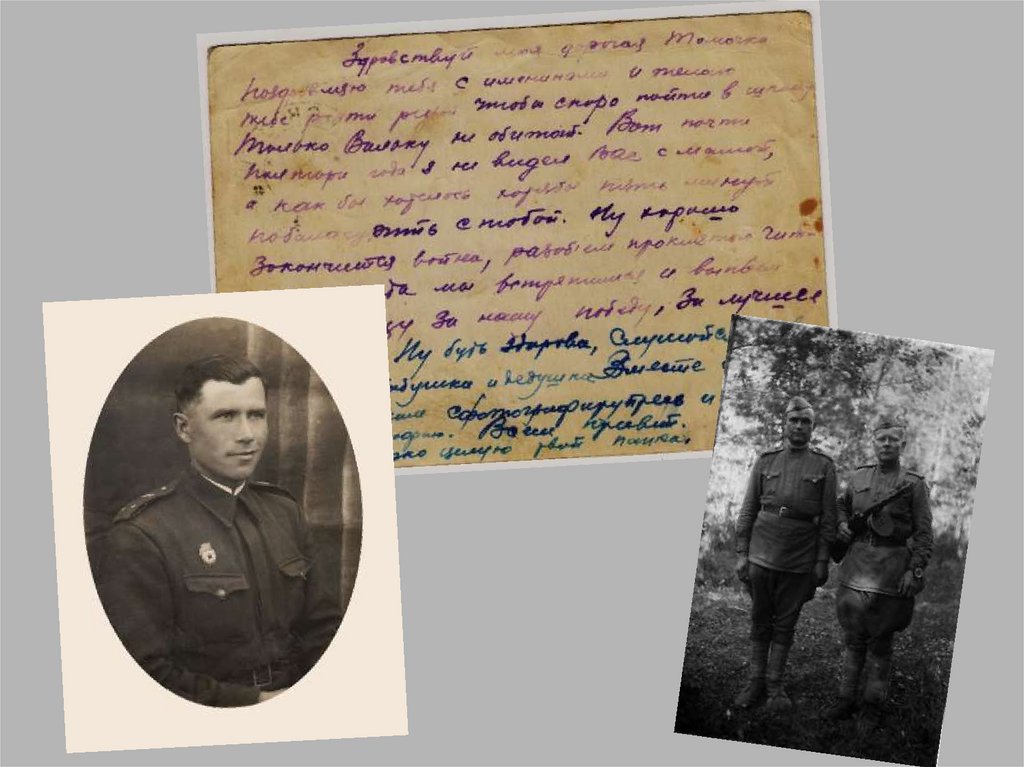 Здравствуй моя дорогая Томочка
Поздравляю тебя с именинами и желаю
тебе расти чтобы скоро пойти в школу
только Вальку не обижай. Вот почти
полтора года я не видел Вас с мамой,
а как бы хотелось хотябы пять минут
с тобой. Ну хорошо
Закончится война, разобьем проклятого
мы встретимся и выпьем
За нашу победу, За лучшее
Ну будь здорова, Слушайся
и дедушка Вместе
сфотографируйтесь и
Всем привет.
целую твой папка.